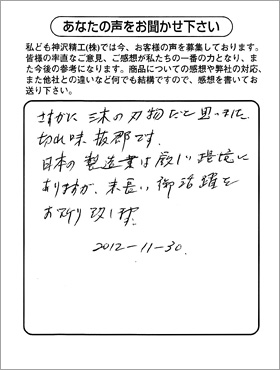 あなたの声をお聞かせ下さい
私ども神沢精工(株)では今、お客様の声を募集しております。
皆様の率直なご意見、ご感想が私たちの一番の力となり、ま
た今後の参考になります。商品についての感想や弊社の対応、
また他社との違いなど何でも結構ですので、感想を書いてお
送り下さい。
さすがに 三木の刃物だと思いました
切れ味 抜群です。
日本の製造業は厳しい環境に
ありますが、末長い御活躍を
お祈り致します。
2012-11-30.